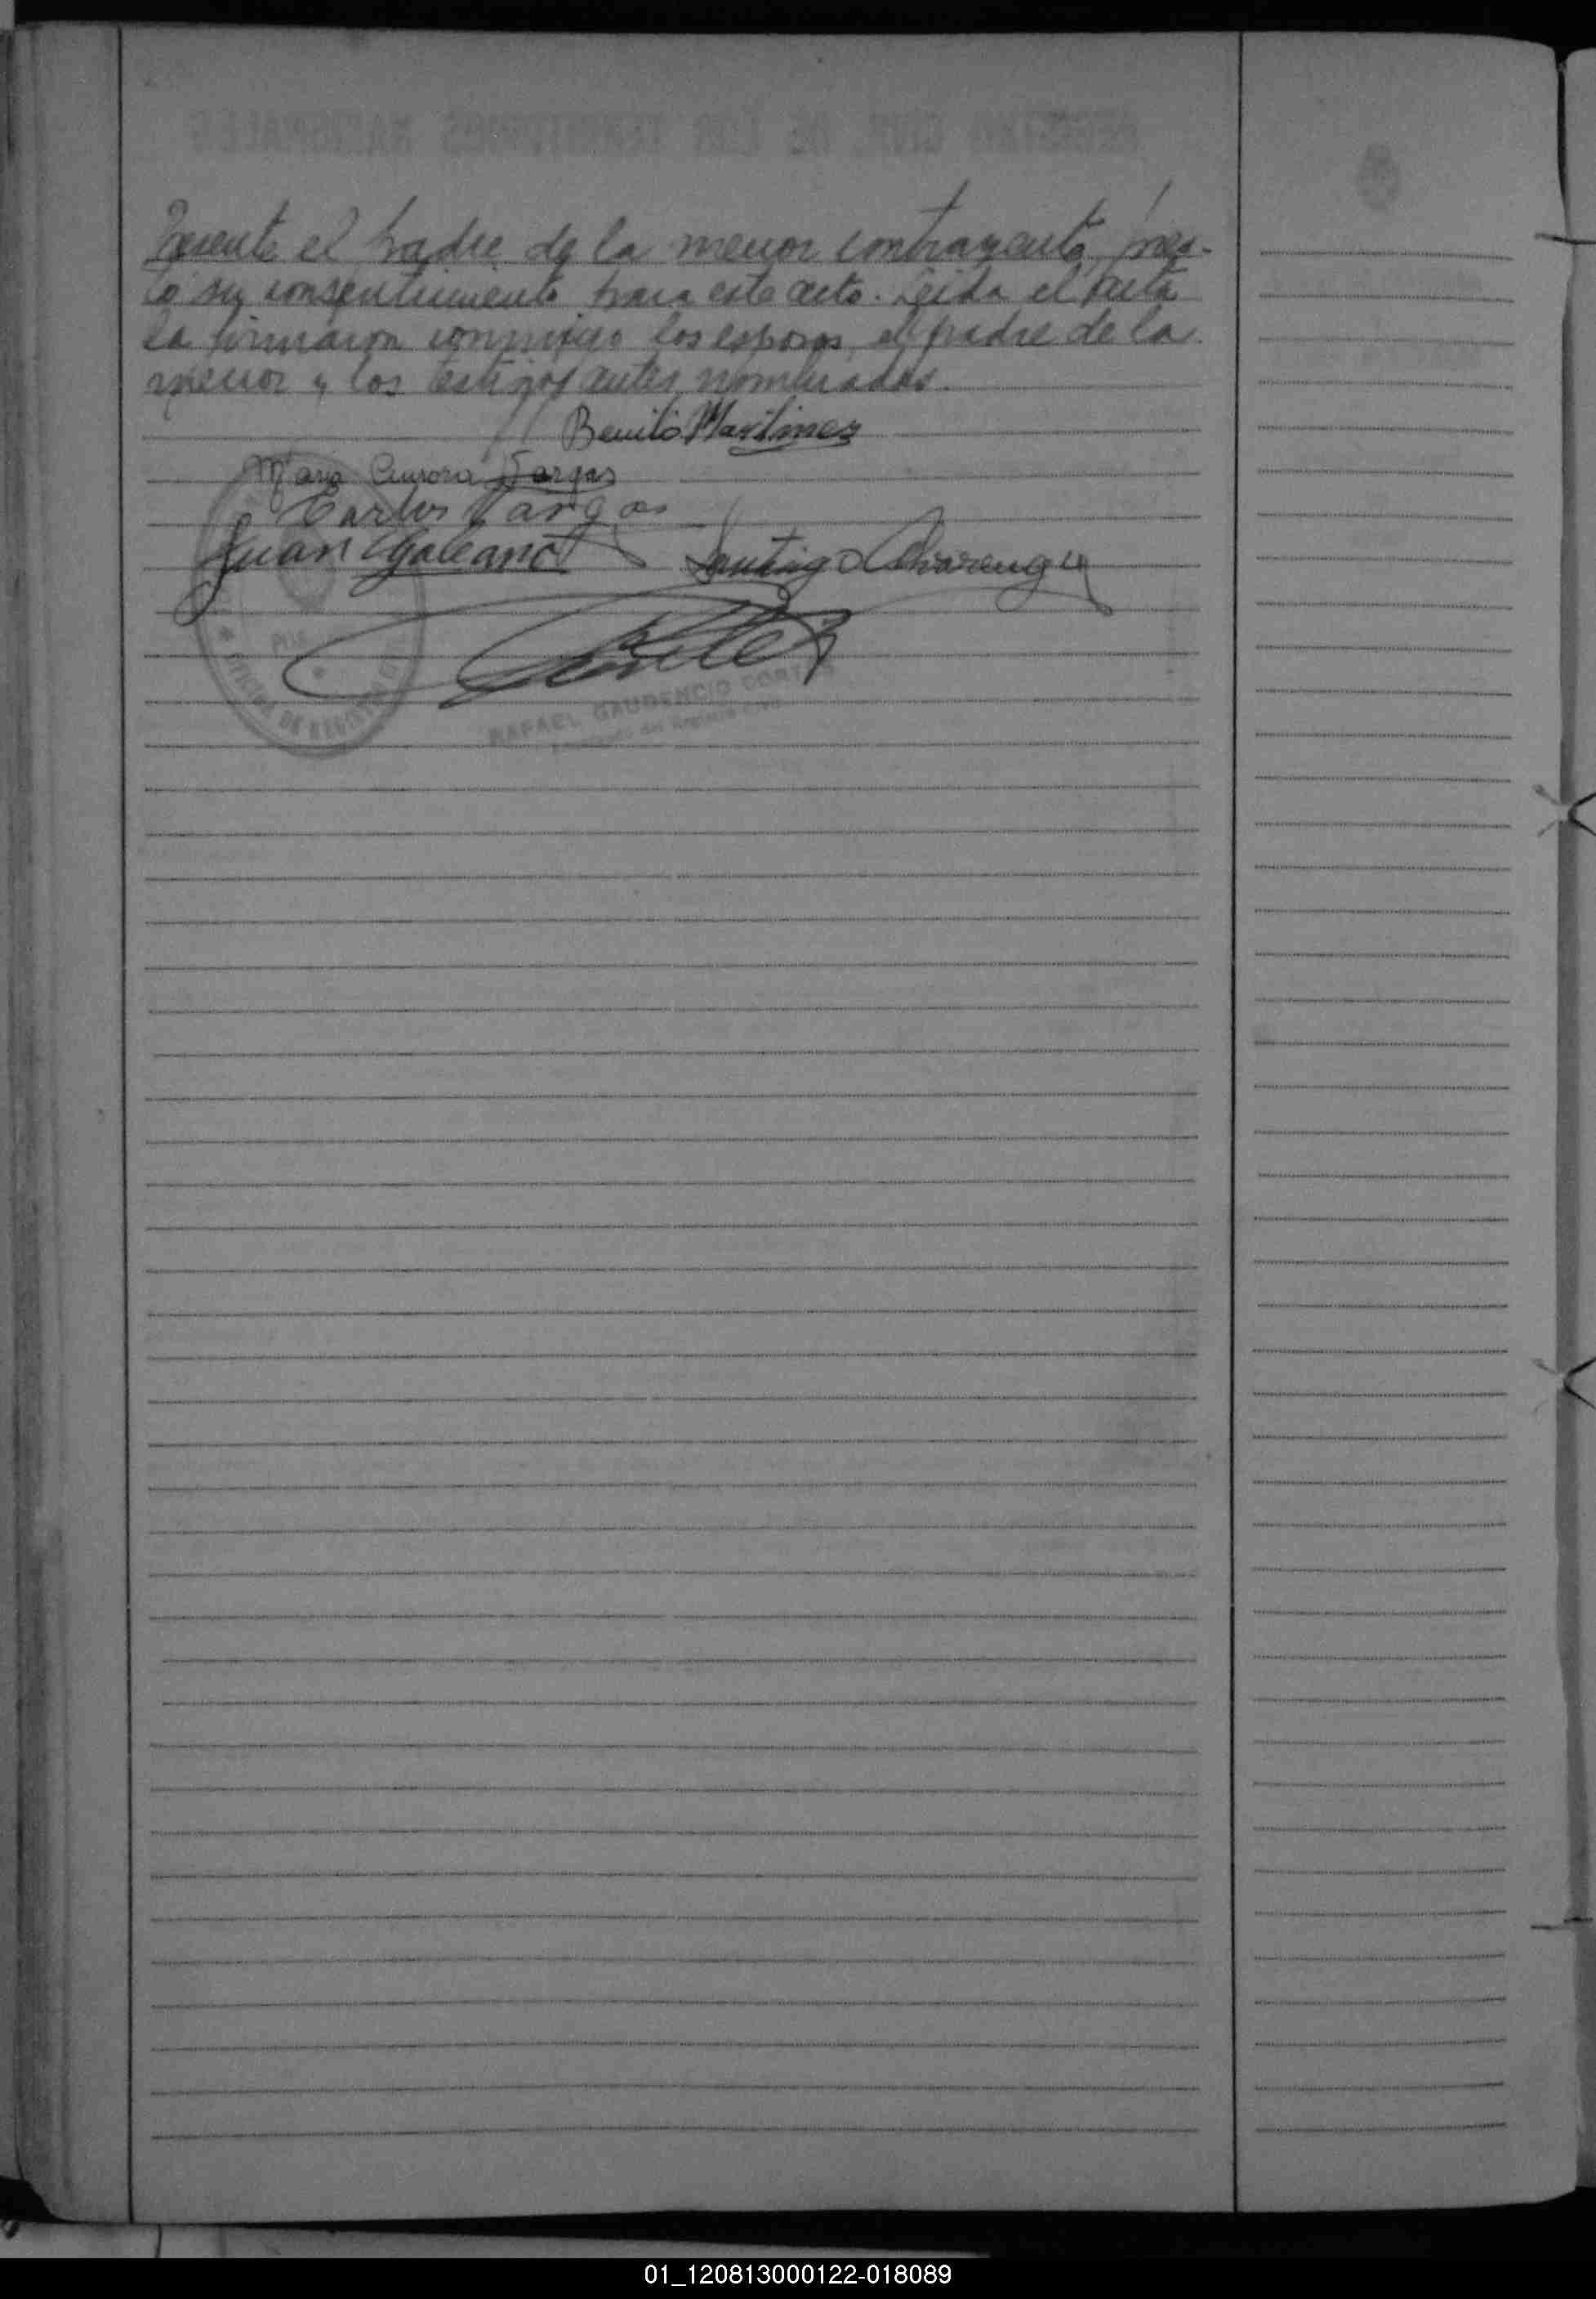 Presente el padre de la menor contrayente, pres-
tó su consentimiento para este acto. Leída el acta
la firmaron conmigo los esposos, el padre de la
menor y los testigos antes nombrados.
Benito Martinez
Maria Aurora Vargas
Carlos Vargas
Juan Galeano Santiago Charenga
RAFAEL GAUDENCIO CORTES
Encargado del Registro Civil
OFICINA DE REGISTRO
01_120813000122-018089